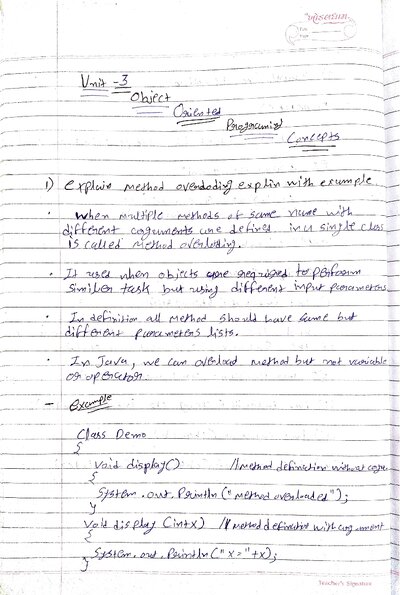 Unit - 3
Object
Oriented
Programing
Concepts
1) Explain method overloding explin with example
· When multiple methods of same name with
different arguments are defined in a single class
is called method overloding.
· It used when objects are required to perform
similer task but using different input parameters.
· In definition all method should have same but
different parameters lists.
· In Java, we can overload method but not variable
or operator.
- Example
Class Demo
{
void display() //method defination without
{
System.out.Println("method overloaded");
}
void display (int x) //method defination with argument
{
System.out.Println("x="+x);
}
Teacher's Signature